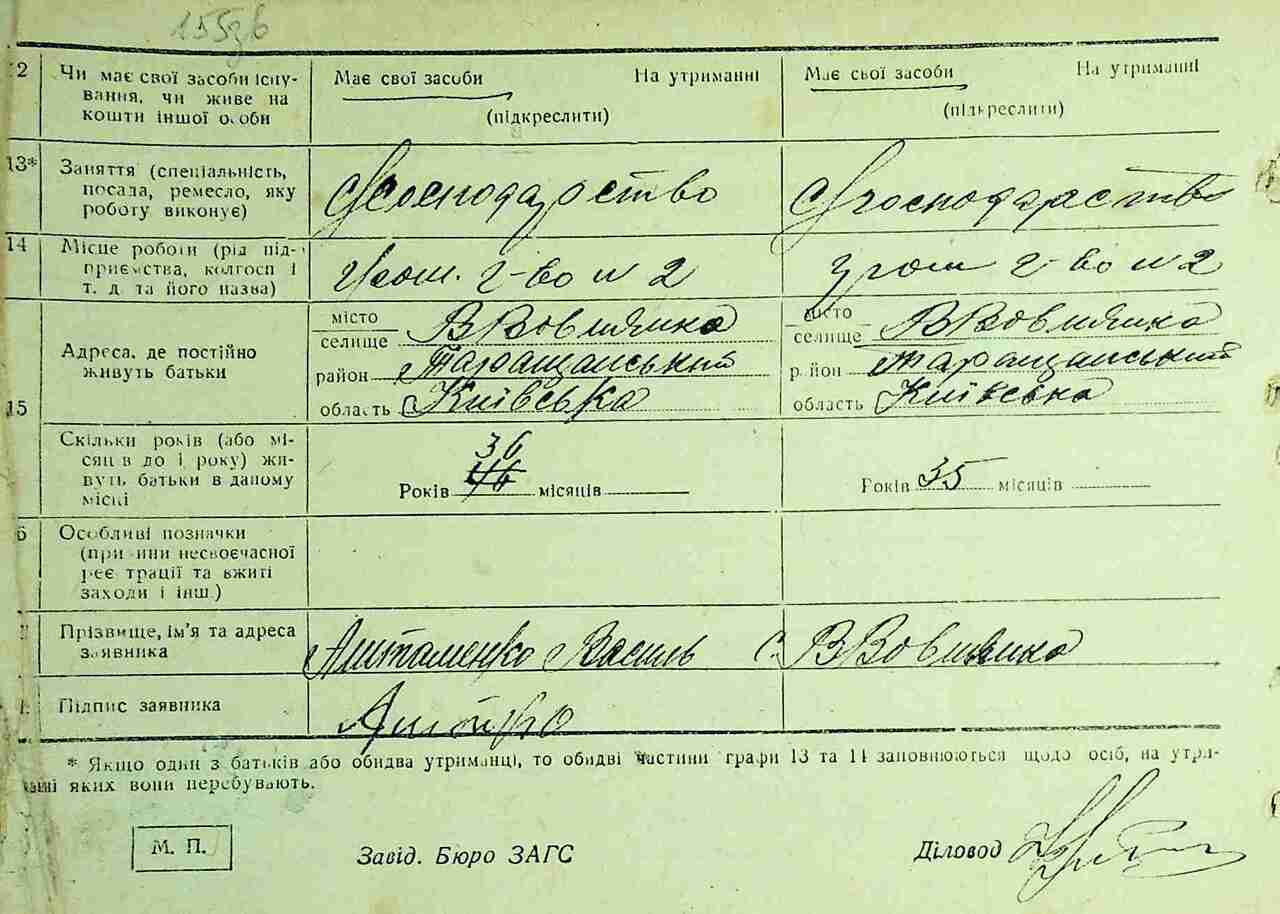 155зв
12 Чи має свої засоби існу-
вання, чи живе на
кошти іншої особи
Має свої засоби На утриманні
(підкреслити)
Має свої засоби На утриманні
(підкреслити)
13* Заняття (спеціальність,
посада, ремесло, яку
роботу виконує)
Господарство
Господарство
14 Місце роботи (рід під-
приємства, колгосп і
т. д. та його назва)
Гром. г-во н 2
Гром г-во н 2
15 Адреса, де постійно
живуть батьки
місто
селище В Вовнянка
район Таращанський
область Київська
місто
селище В Вовнянка
район Таращанський
область Київська
Скільки років (або мі-
сяців до 1 року) жи-
вуть батьки в даному
місці
36
Років 46 місяців
Років 35 місяців
6 Особливі позначки
(причини несвоєчасної
реєстрації та вжиті
заходи і інш.)
Прізвище, ім'я та адреса
заявника
Василь с. В Вовнянка
Підпис заявника
* Якщо один з батьків або обидва утриманці, то обидві частини графи 13 та 14 заповнюються щодо осіб, на утри-
манні яких вони перебувають.
М. П.
Завід. Бюро ЗАГС
Діловод